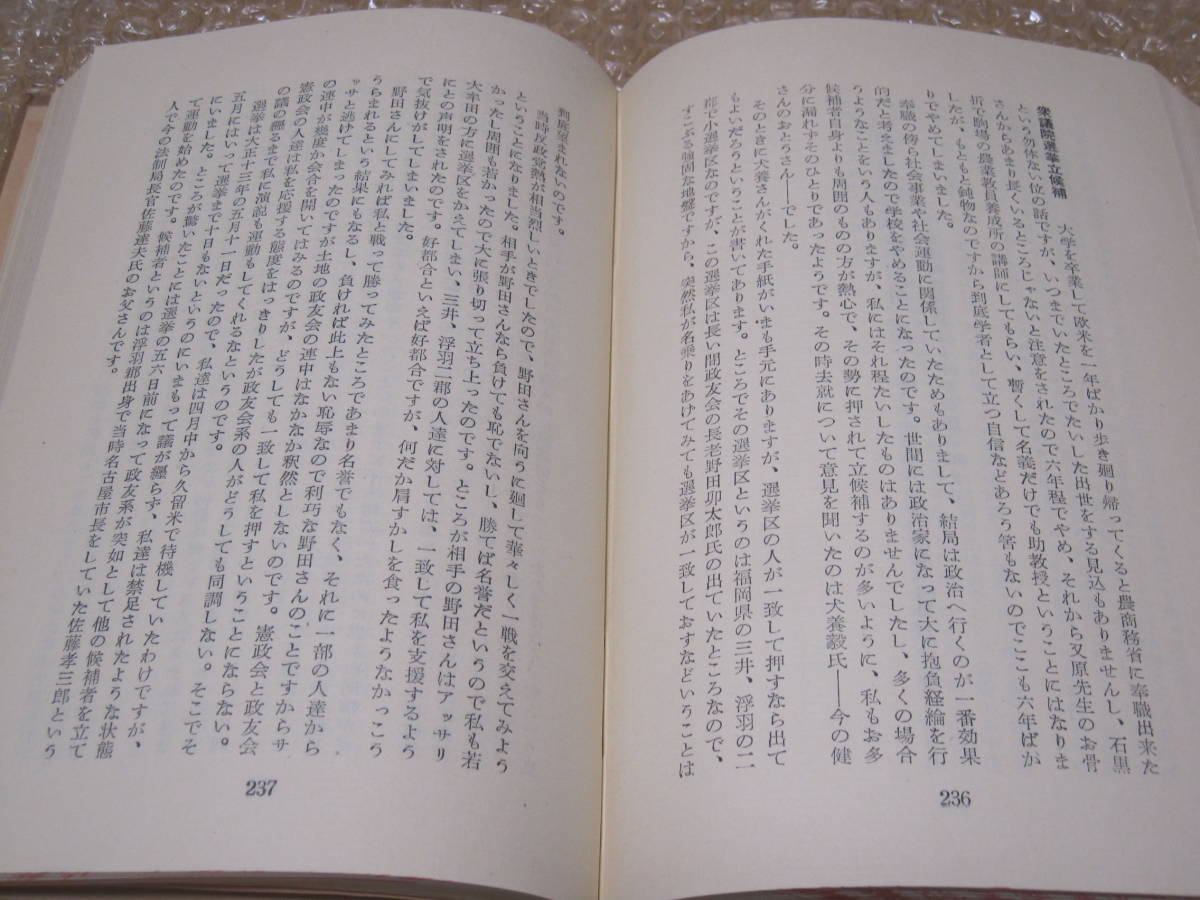 衆議院選挙立候補　大学を卒業して欧米を一年ばかり歩き廻り帰ってくると農商務省に奉職出来た
という勿体ない位の話ですが、いつまでいたところでたいした出世をする見込もありませんし、石黒
さんからあまり長くいるところじゃないと注意をされたので六年程でやめ、それから又原先生のお骨
折で駒場の農業教員養成所の講師にしてもらい、暫くして名義だけでも助教授ということにはなりま
したが、もともと鈍物なのですから到底学者として立つ自信などあろう筈もないのでここも六年ばか
りでやめてしまいました。
奉職の傍ら社会事業や社会運動に関係していたためもありまして、結局は政治へ行くのが一番効果
的だと考えましたので学校をやめることになったのです。世間には政治家になって大に抱負経綸を行
うようなことをという人もありますが、私にはそれ程たいしたものはありませんでしたし、多くの場合
候補者自身よりも周囲のものの方が熱心で、その勢に押されて立候補するのが多いように、私もお多
分に漏れずそのひとりであったようです。その時去就について意見を聞いたのは犬養毅氏――今の健
さんのおとうさん――でした。
そのときに犬養さんがくれた手紙がいまも手元にありますが、選挙区の人が一致して押すなら出て
もよいだろうということが書いてあります。ところでその選挙区というのは福岡県の三井、浮羽の二
郡で小選挙区なのですが、この選挙区は長い間政友会の長老野田卯太郎氏の出ていたところなので、
すこぶる強固な地盤ですから、突然私が名乗りをあげてみても選挙区が一致しておすなどいうことは
236
到底望まれないのです。
当時は政党熱が相当烈しいときでしたので、野田さんを向うに廻して華々しく一戦を交えてみよう
ということになりました。相手が野田さんなら負けても恥でないし、勝てば名誉だというので私も若
かったし周囲も若かったので大に張り切って立ち上ったのです。ところが相手の野田さんはアッサリ
大牟田の方に選挙区をかえてしまい、三井、浮羽二郡の人達に対しては、一致して私を支援するよう
にとの声明をされたのです。好都合といえば好都合ですが、何だか肩すかしを食ったようなかっこう
で気抜けがしてしまいました。
野田さんにしてみれば私と戦って勝ってみたところであまり名誉でもなく、それに一部の人達から
うらまれるという結果にもなるし、負ければ此上もない恥辱なので利巧な野田さんのことですからサ
ッサと逃げてしまったのですが土地の政友会の連中はなかなか釈然としないのです。憲政会と政友会
の連中が幾度か会合を開いてはみるのですが、どうしても一致して私を押すということにならない。
憲政会の人達は私を応援する態度をはっきりしたが政友会系の人がどうしても同調しない。そこでそ
の議の纒るまで私に演説も運動もしてくれるなというのです。
選挙は大正十三年の五月十一日だったので、私達は四月中から久留米で待機していたわけですが、
五月にはいって選挙まで十日もないというのにいまもって議が纒らず、私達は禁足されたような状態
にいました。ところが驚いたことには選挙の五六日前になって政友系が突如として他の候補者を立て
て運動を始めたのです。候補者というのは浮羽郡出身で当時名古屋市長をしていた佐藤孝三郎という
人で今の法制局長官佐藤達夫氏のお父さんです。
237